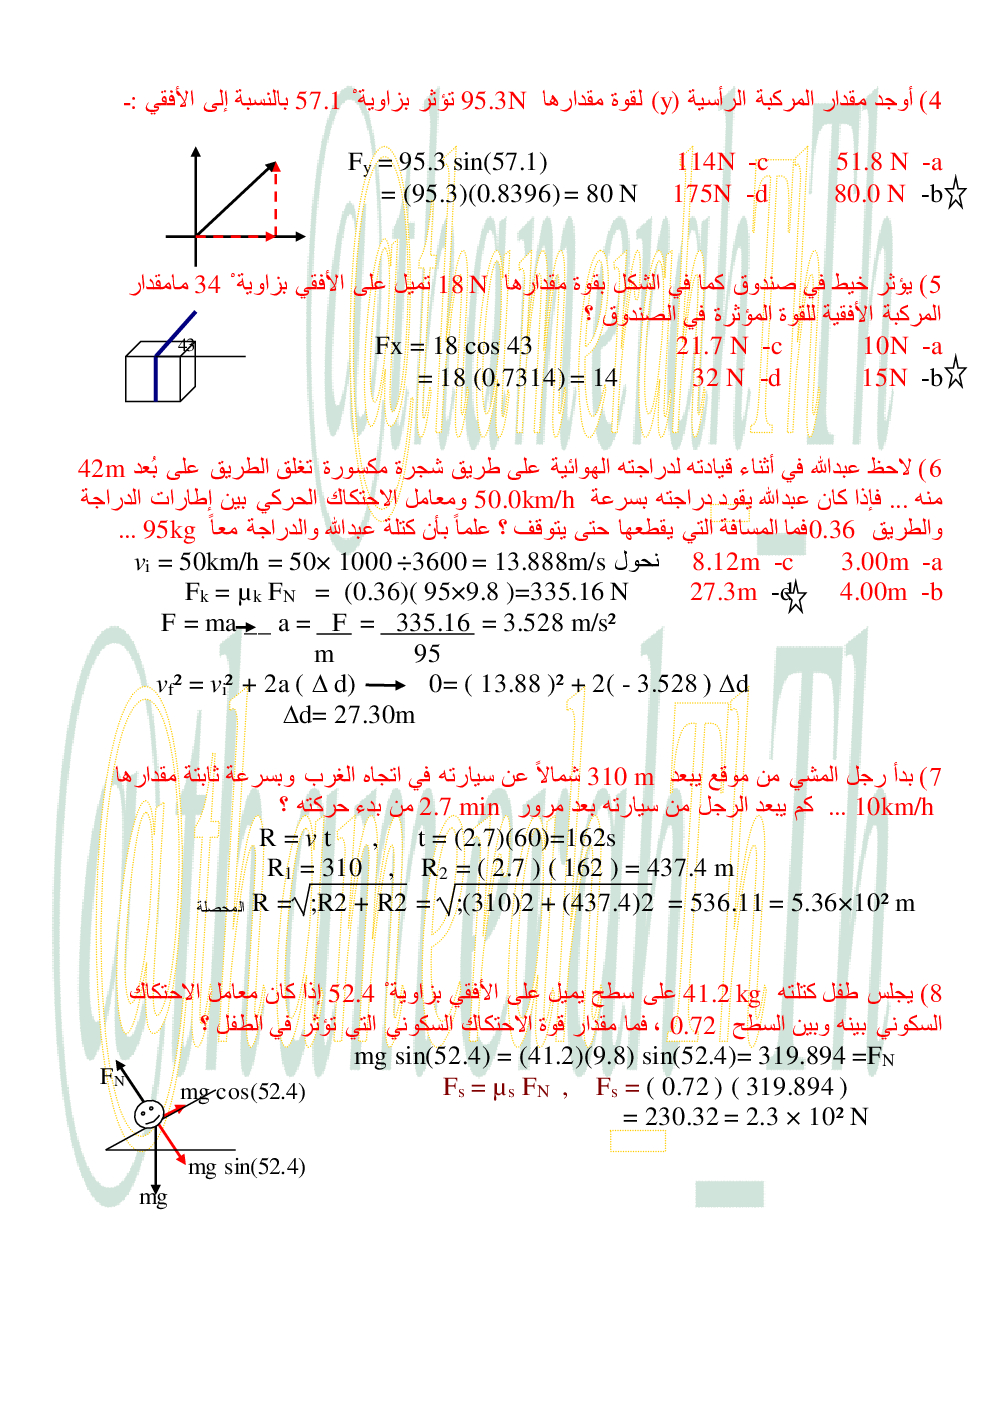 4) أوجد مقدار المركبة الرأسية (y) لقوة مقدارها 95.3N تؤثر بزاوية ْ 57.1 بالنسبة إلى الأفقي :-
51.8 N -a 114N -c Fy = 95.3 sin(57.1)
80.0 N -b 175N -d = (95.3)(0.8396) = 80 N
5) يؤثر خيط في صندوق كما في الشكل بقوة مقدارها 18 N تميل على الأفقي بزاوية ْ 34 مامقدار
المركبة الأفقية للقوة المؤثرة في الصندوق ؟
10N -a 21.7 N -c Fx = 18 cos 43
43
15N -b 32 N -d = 18 (0.7314) = 14
6) لاحظ عبدالله في أثناء قيادته لدراجته الهوائية على طريق شجرة مكسورة تغلق الطريق على بُعد 42m
منه ... فإذا كان عبدالله يقود دراجته بسرعة 50.0km/h ومعامل الاحتكاك الحركي بين إطارات الدراجة
والطريق 0.36فما المسافة التي يقطعها حتى يتوقف ؟ علماً بأن كتلة عبدالله والدراجة معاً 95kg ...
3.00m -a 8.12m -c نحول vi = 50km/h = 50× 1000 ÷3600 = 13.888m/s
4.00m -b 27.3m -d Fk = µk FN = (0.36)( 95×9.8 )=335.16 N
F = ma __ a = F = 335.16 = 3.528 m/s²
m 95
vf² = vi² + 2a ( Δ d) 0= ( 13.88 )² + 2( - 3.528 ) Δd
Δd= 27.30m
7) بدأ رجل المشي من موقع يبعد 310 m شمالاً عن سيارته في اتجاه الغرب وبسرعة ثابتة مقدارها
10km/h ... كم يبعد الرجل من سيارته بعد مرور 2.7 min من بدء حركته ؟
R = v t , t = (2.7)(60)=162s
R1 = 310 , R2 = ( 2.7 ) ( 162 ) = 437.4 m
المحصلة R =√;R2 + R2 = √;(310)2 + (437.4)2 = 536.11 = 5.36×10² m
8) يجلس طفل كتلته 41.2 kg على سطح يميل على الأفقي بزاوية ْ 52.4 إذا كان معامل الاحتكاك
السكوني بينه وبين السطح 0.72 ، فما مقدار قوة الاحتكاك السكوني التي تؤثر في الطفل ؟
mg sin(52.4) = (41.2)(9.8) sin(52.4)= 319.894 =FN
FN
mg cos(52.4) Fs = µs FN , Fs = ( 0.72 ) ( 319.894 )
= 230.32 = 2.3 × 10² N
mg sin(52.4)
mg
@thamerah_Th
@thamerah_Th